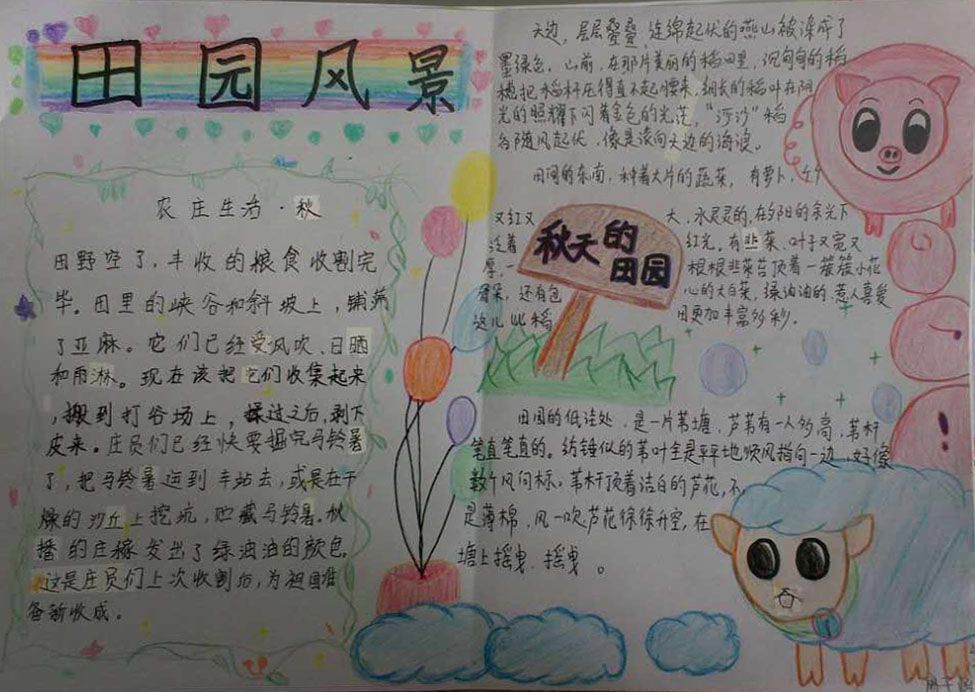 田园风景
农庄生活·秋
田野空了，丰收的粮食收割完
毕。田里的峡谷和斜坡上，铺满
了亚麻。它们已经受风吹、日晒
和雨淋。现在该把它们收集起来
，搬到打谷场上，揉过之后，剥下
皮来。庄员们已经快要掘完马铃薯
了，把马铃薯运到车站去，或是在干
燥的沙丘上挖坑，贮藏马铃薯。秋
播的庄稼发出了绿油油的颜色。
这是庄员们上次收割后，为祖国准
备新收成。
天边，层层叠叠，连绵起伏的燕山被染成了
墨绿色。山前，在那片美丽的稻田里，沉甸甸的稻
穗把水稻杆压得直不起腰来，细长的稻叶在阳
光的照耀下闪着金色的光茫，“沙沙”稻
谷随风起伏，像是滚向天边的海浪。
田园的东南，种着大片的蔬菜，有萝卜，个个
又红又
大，水灵灵的，在夕阳的余光下
泛着
红光。有韭菜、叶子又宽又
厚，一
根根韭菜苔顶着一簇簇小花
骨朵，还有包
心的大白菜，绿油油的惹人喜爱
这儿比稻
田更加丰富多彩。
秋天的
田园
田园的低洼处，是一片苇塘，芦苇有一人多高，苇杆
笔直笔直的。纺锤似的苇叶全是平平地顺风指向一边，好像
数个风向标。苇杆顶着洁白的芦花，不
是薄棉，风一吹芦花徐徐升空，在
塘上摇曳，摇曳。